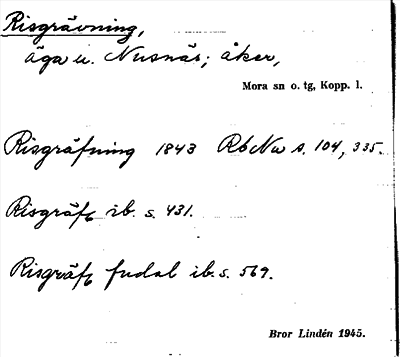 Risgrävning,
äga u. Nusnäs; åker,
Mora sn o. tg, Kopp. l.
Risgräfning 1843 Rb Nu s. 104, 335.
Risgräfg ib. s. 431.
Risgräfg fudal ib. s. 569.
Bror Lindén 1945.